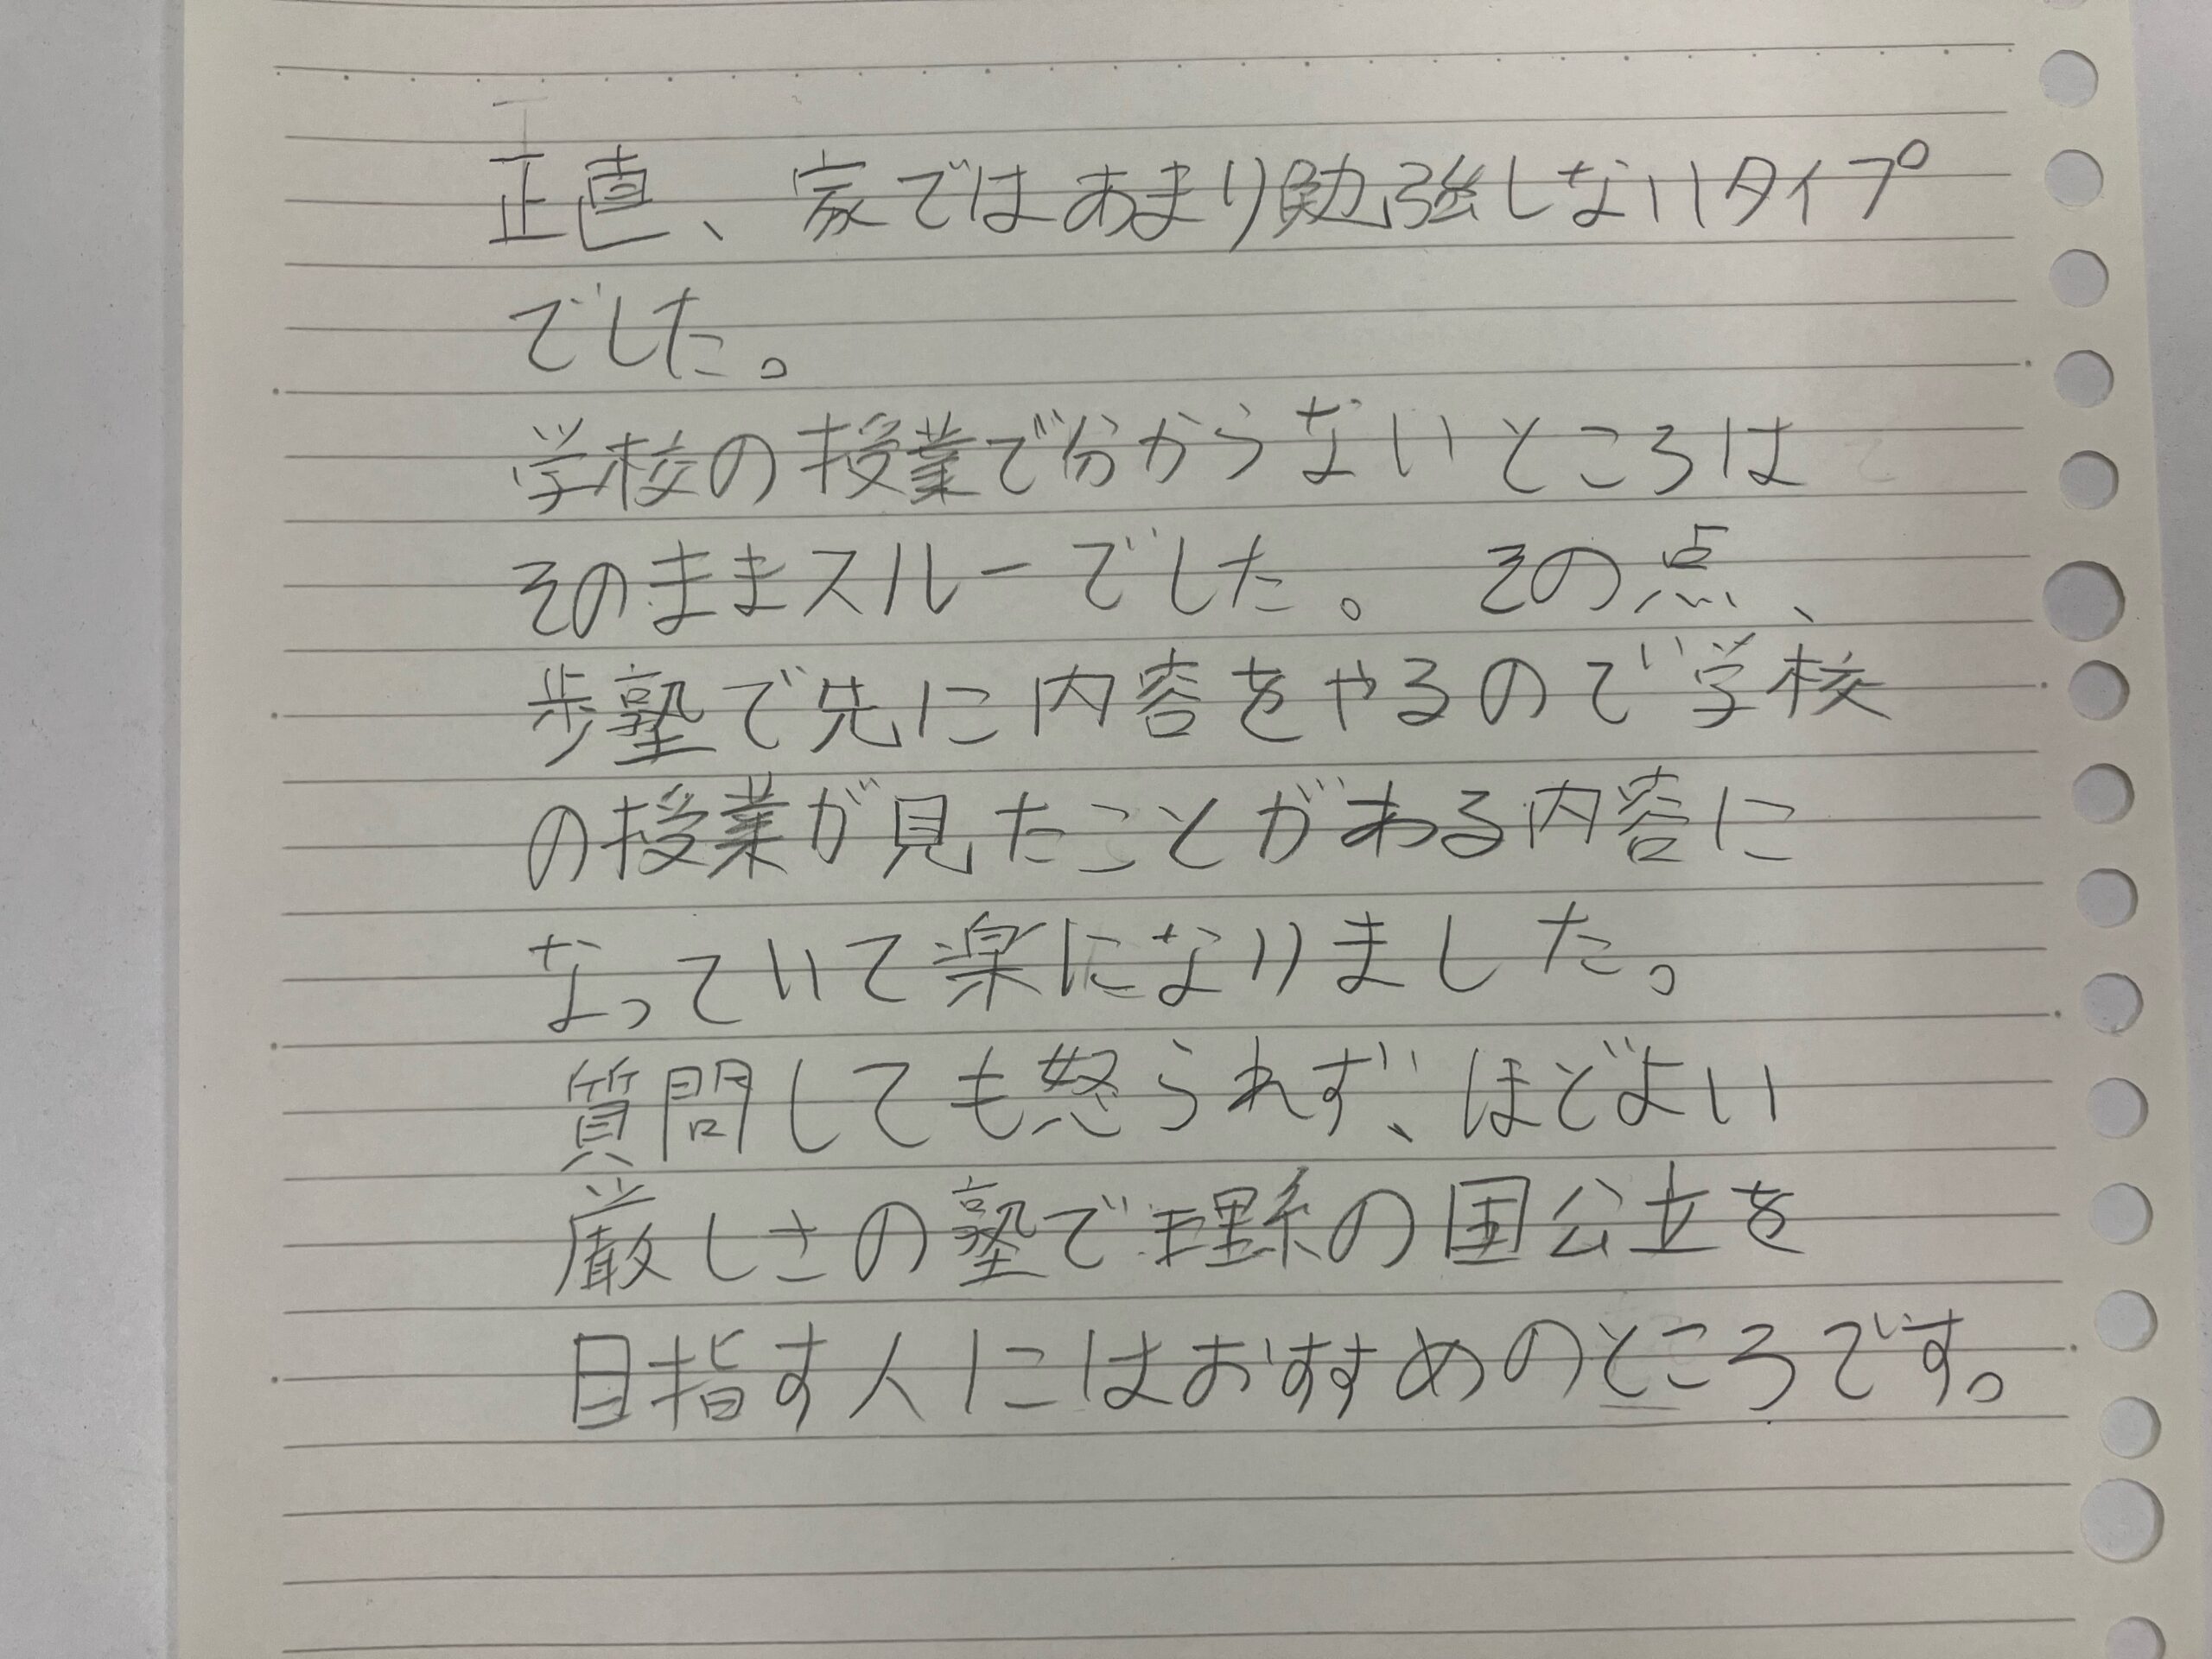 正直、家ではあまり勉強しないタイプ
でした。
学校の授業で分からないところは
そのままスルーでした。その点、
歩塾で先に内容をやるので学校
の授業が見たことがある内容に
なっていて楽になりました。
質問しても怒られず、ほどよい
厳しさの塾で理系の国公立を
目指す人にはおすすめのところです。